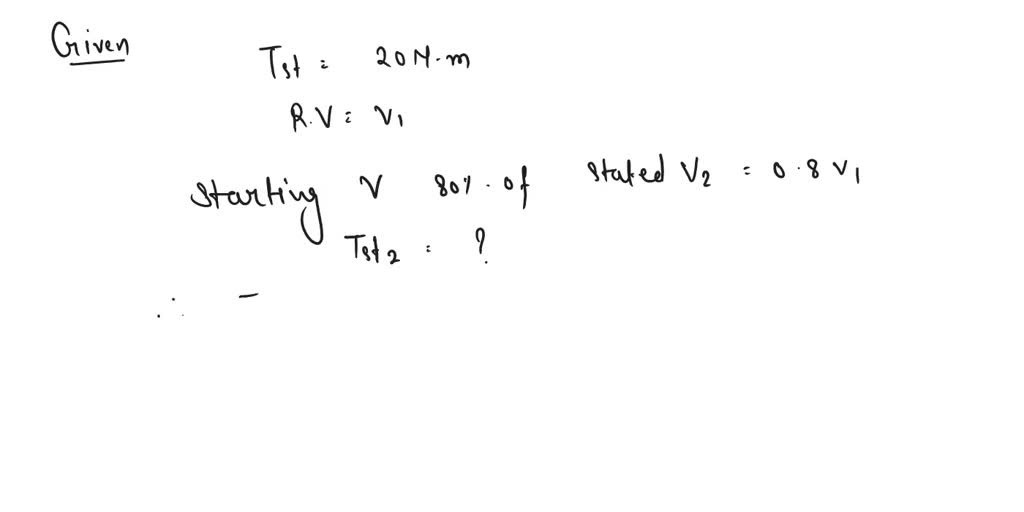 Given
Tst = 20 N.m
R.V = V1
Starting V 80% of stated V2 = 0.8 V1
Tst2 = ?
∴ –